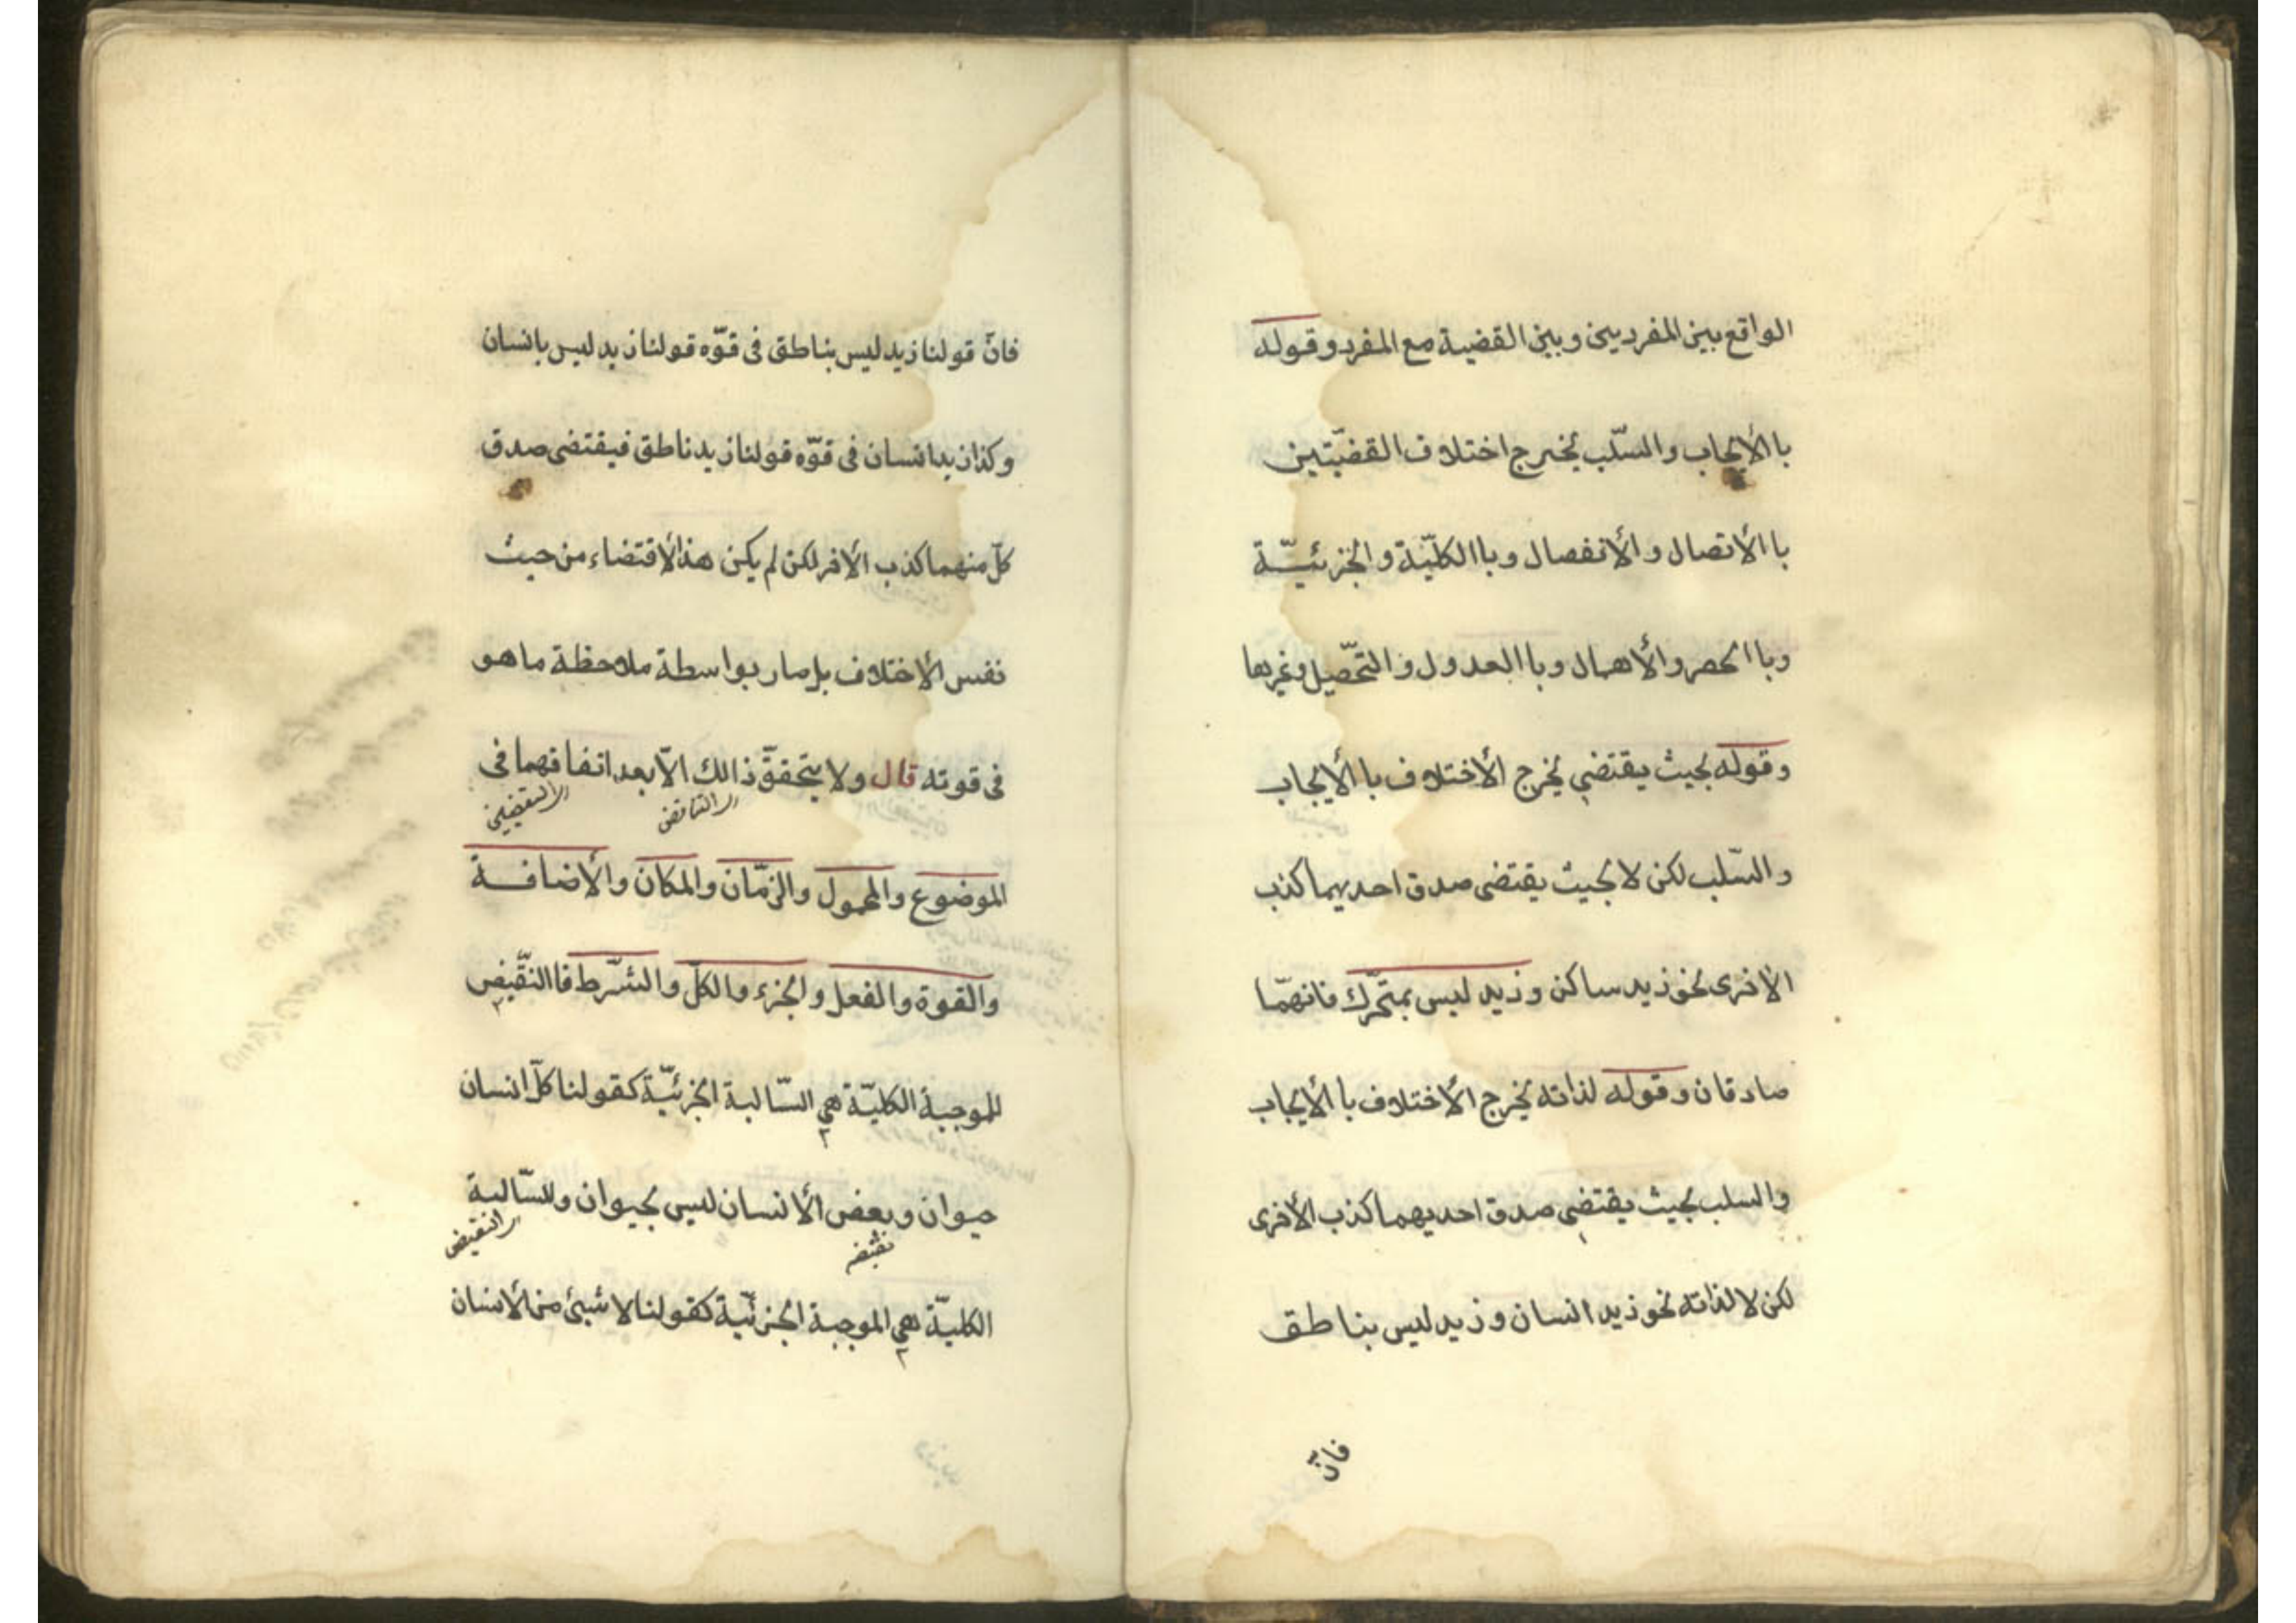 الواقع بين المفردين وبين القضية مع المفرد وقوله
باالأيجاب والسّلب يخرج اختلاف القضيّتين
باالأتصال والأنفصال وباالكليّة والجزئيّة
وباالحصر والأهمال وباالعدول والتحّصيل وغيرها
وقوله بحيث يقتضي يخرج الأختلاف باالأيجاب
والسّلب لكن لا بحيث يقتضى صدق احديهما كذب
الأخرى نحو زيد ساكن وزيد ليس بمتحّرك فانهمّا
صادقان وقوله لذاته يخرج الأختلاف باالأيجاب
والسلب بحيث يقتضي صدق احديهما كذب الأخرى
لكن لا لذاته نحو زيد انسان وزيد ليس بناطق
فانّ
فانّ قولنا زيد ليس بناطق فى قوّه قولنا زيد ليس بانسان
وكذا زيد انسان فى قوّه قولنا زيد ناطق فيقتضى صدق
كلّ منهما كذب الأخر لكن لم يكن هذا الأقتضاء من حيث
نفس الأختلاف بل صار بواسطة ملاحظة ما هو
فى قوته قال ولا يتحققّ ذالك الاّ بعد اتفاقهما فى
اى التناقض
اى النقيضين
الموضوع والمحمول والزمّان والمكان والأضافة
والقوة والفعل والجزء والكلّ والشرّط فاالنقّيض
للموجبة الكليّة هي السّالبة الجزئيّة كقولنا كلّ انسان
حيوان وبعض الأنسان ليس بحيوان وللسّالبة
اى النقيض
الكليّة هي الموجبة الجزئيّة كقولنا لا شيئ من الأنسان